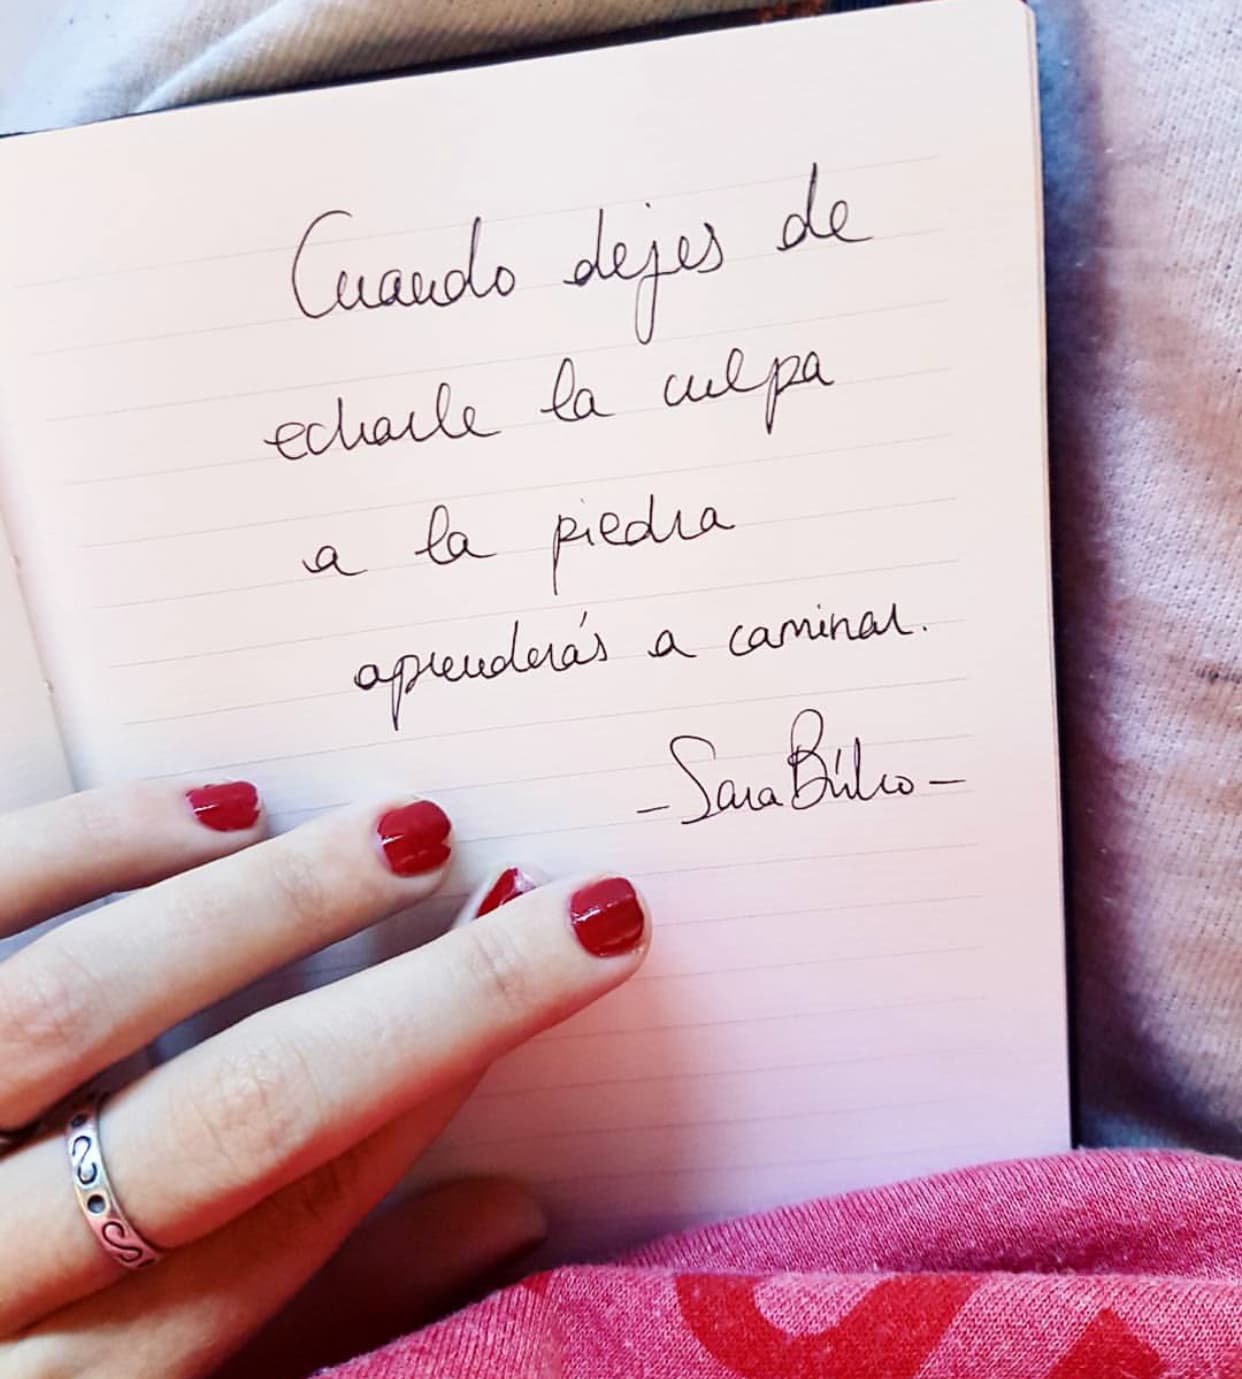 Cuando dejes de
echarle la culpa
a la piedra
aprenderás a caminar.
- Sara Búho -